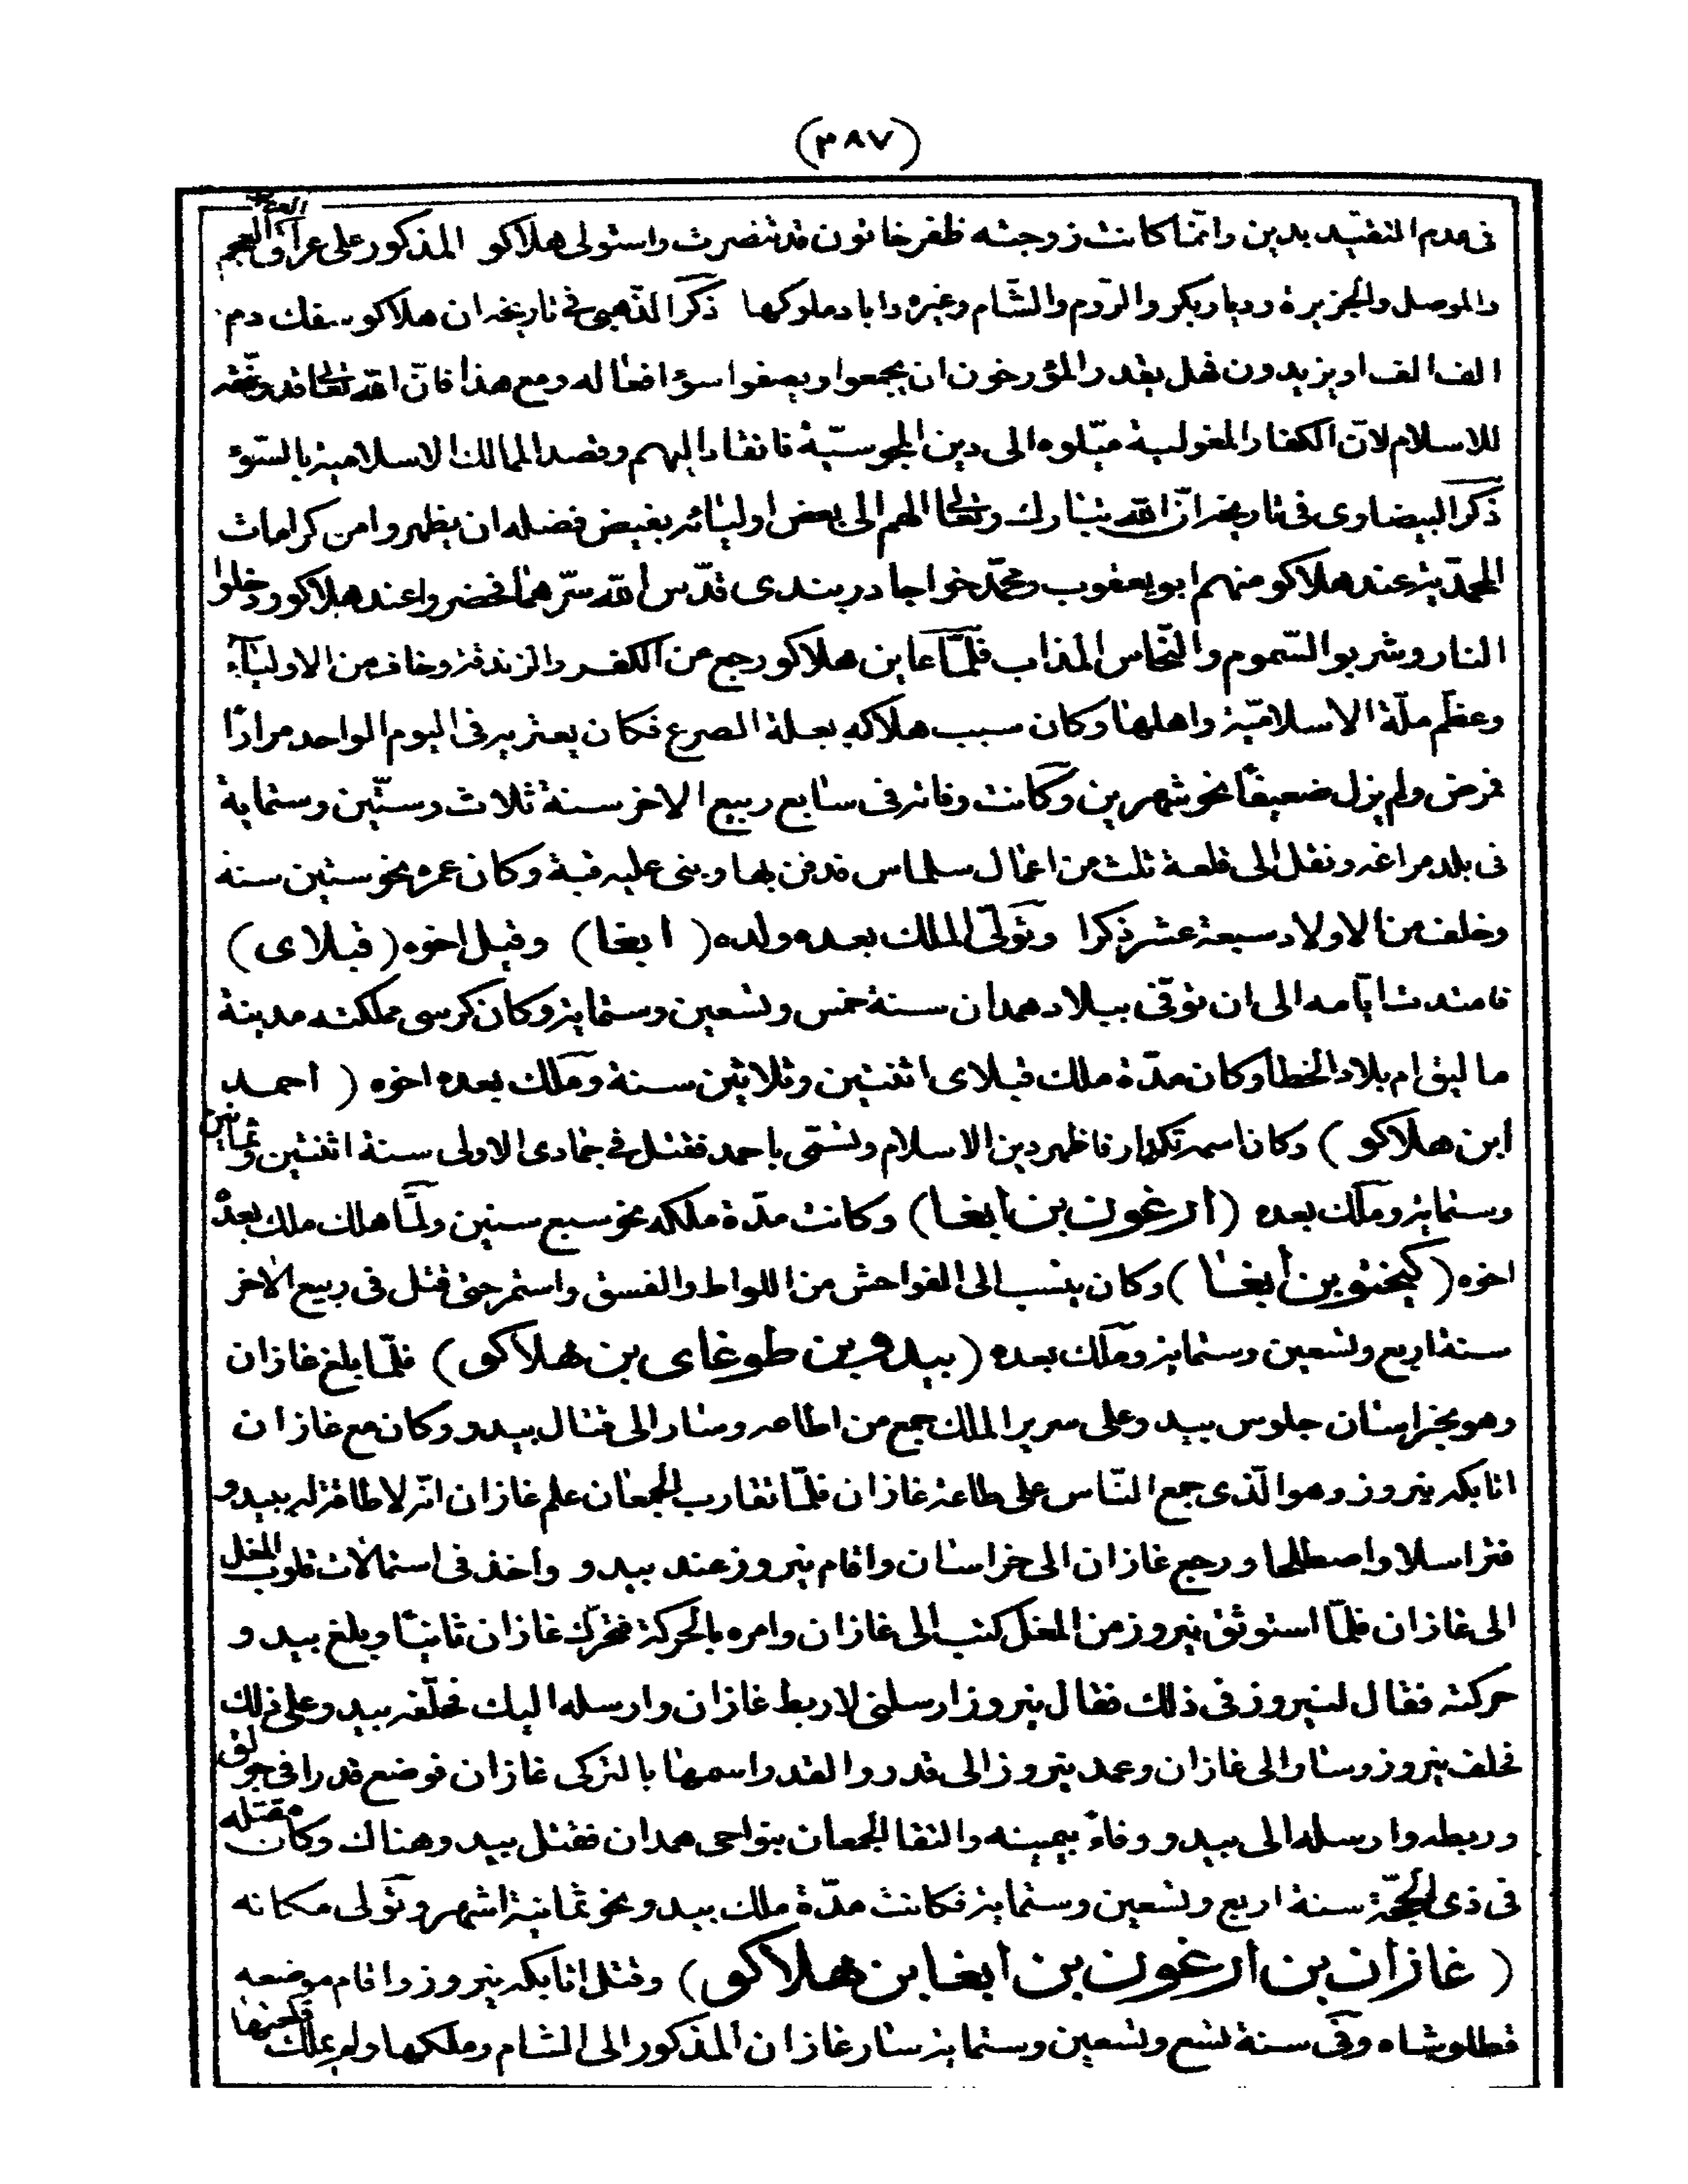 (٣٨٧)
فى عدم التقيّد بدين وانّما كانت زوجته ظفر خاتون قد تنصرت واستولى هلاكو المذكور على عراق العجم
والموصل والجزيرة وديار بكر والرّوم والشّام وغيره واباد ملوكها ذكر الذّهبى فى تاريخه ان هلاكو سفك دم
الف الف او يزيدون فهل يقدر المؤرخون ان يجمعوا ويصفوا سوؤ افعاله ومع هذا فانّ الله تعالى قد وفّقه
للاسلام لانّ الكفار المغولية ميّلوه الى دين المجوسيّة فانقاد اليهم وقصد الممالك الاسلامية بالسّوء
ذكر البيضاوى فى تاريخه انّ الله تبارك وتعالى الهم الى بعض اوليائه بفيض فضله ان يظهروا من كرامات
المحمّدية عند هلاكو منهم ابو يعقوب ومحمّد خواجا دربندى قدّس الله سرّهما فحضروا عند هلاكو ودخلوا
النار وشربوا السّموم والنّحاس المذاب فلمّا عاين هلاكو رجع عن الكفر والزندقة وخاف من الاولياء
وعظّم ملّة الاسلاميّة واهلها وكان سبب هلاكه بعلة الصرع فكان يعتريه فى اليوم الواحد مرارًا
فرض ولم يزل ضعيفًا نحو شهرين وكانت وفاته فى سابع ربيع الاخر سنة ثلاث وستّين وستماية
فى بلد مراغه ونقل الى قلعة تلث من اعمال سلماس فدفن بها وبنى عليه قبة وكان عمره نحو ستين سنة
وخلف من الاولاد سبعة عشر ذكرا وتولّى الملك بعده ولده ( ابغا ) وقيل اخوه ( قبلاى )
فامتدت ايّامه الى ان توفّى ببلاد همدان سنة خمس وتسعين وستماية وكان كرسى مملكته مدينة
ما ليق ام بلاد الخطا وكان مدّة ملك قبلاى اثنتين وثلاثين سنة وملك بعده اخوه ( احمد
ابن هلاكو ) وكان اسمه تكدار فاظهر دين الاسلام وتسمّى باحمد فقتل فى جمادى الاولى سنة اثنتين وثمانين
وستماية وملك بعده ( ارغون بن ابغا ) وكانت مدّة ملكه نحو سبع سنين ولمّا هلك ملك بعده
اخوه ( كيختو بن ابغا ) وكان ينسب الى الفواحش من اللواط والفسق واستمر حتى قتل فى ربيع الاخر
سنة اربع وتسعين وستماية وملك بعده ( بيدو بن طوغاى بن هلاكو ) فلمّا بلغ غازان
وهو بخراسان جلوس بيدو على سرير الملك جمع من اطاعه وسار الى قتال بيدو وكان مع غازان
اتابكه نيروز وهو الّذى جمع النّاس على طاعة غازان فلمّا تقارب الجمعان علم غازان انّه لا طاقة له ببيدو
فتراسلا واصطلحا ورجع غازان الى خراسان واقام نيروز عند بيدو واخذ فى استمالات قلوب المغل
الى غازان فلمّا استوثق نيروز من المغل كتب الى غازان وامره بالحركة فتحرّك غازان ثانيًا وبلغ بيدو
حركته فقال لنيروز فى ذلك فقال نيروز ارسلنى لاربط غازان وارسله اليك فحلّفه بيدو على ذلك
فحلف نيروز وسار الى غازان وعمد نيروز الى قدر والقدر اسمها بالتركى غازان فوضع قدرا فى جولق
وربطه وارسله الى بيدو ووفاءً بيمينه والتقا الجمعان بنواحى همدان فقتل بيدو وهناك وكان مقتله
فى ذى الحجّة سنة اربع وتسعين وستماية فكانت مدّة ملك بيدو نحو ثمانية اشهر وتولى مكانه
( غازان بن ارغون بن ابغا بن هلاكو ) وقتل اتابكه نيروز واقام موضعه
قطلوشاه وفى سنة تسع وتسعين وستماية سار غازان المذكور الى الشام وملكها ولم يملك